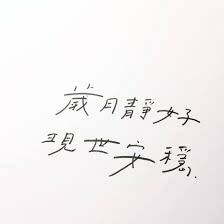 歲月靜好
現世安穩.